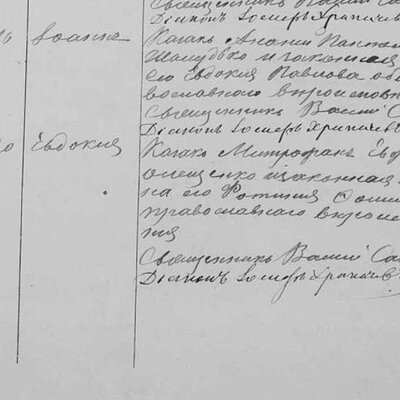 Діаконъ Іосифъ Храпачев
Іоанна Казакъ Ананій Пантел
и законная
его Евдокія Павлова оба
вославнаго вероисповѣ
Священникъ Васил
Діаконъ Іосифъ Храпачев
Евдокія Казакъ Митрофанъ Евф
Онищенко и законная
на его Фотинія
православнаго вероиспо
нія
Священникъ Васил
Діаконъ Іосифъ Храпачев